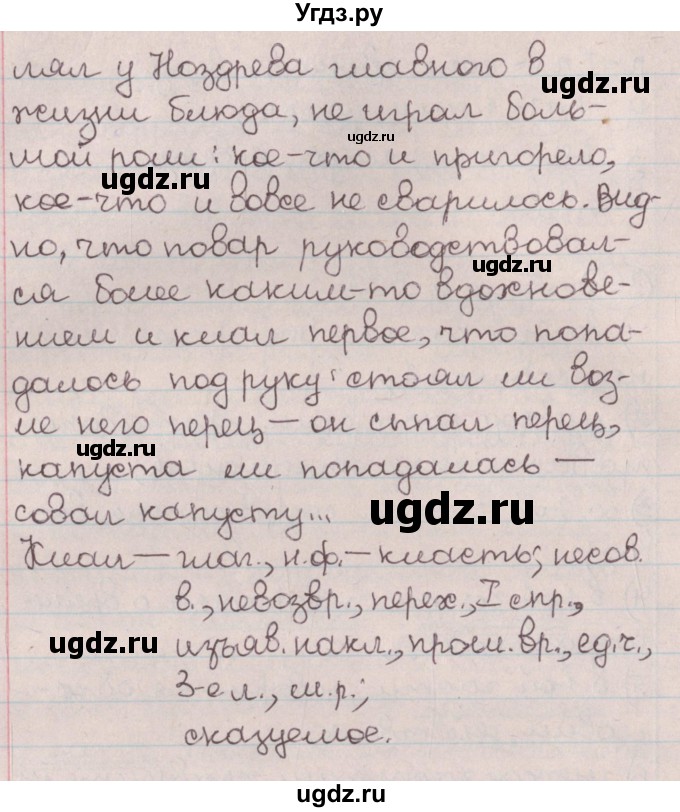 Угдз.ру
лял у Ноздрева главного в
ugdz.ru
жизни блюда, не играл боль-
ugdz.ru
шой роли: кое-что и пригорело,
ugdz.ru
кое-что и вовсе не сварилось. Вид-
но, что повар руководствовал-
ugdz.ru
ся более каким-то вдохнове-
нием и клал первое, что попа-
далось под руку: стоял ли воз-
ле него перец — он сыпал перец,
ugdz.ru
капуста ли попадалась —
совал капусту...
ugdz.ru
Клал — глаг., н.ф. — класть; несов.
в., невозвр., перех., I спр.,
изъяв. накл., прош. вр., ед.ч.,
ugdz.ru
3-е л., м.р.;
сказуемое.
ugdz.ru